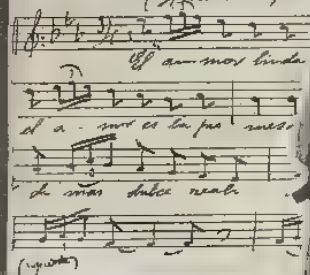 El a- mor linda
el a- mor es la pro mesa
de mas dulce reali